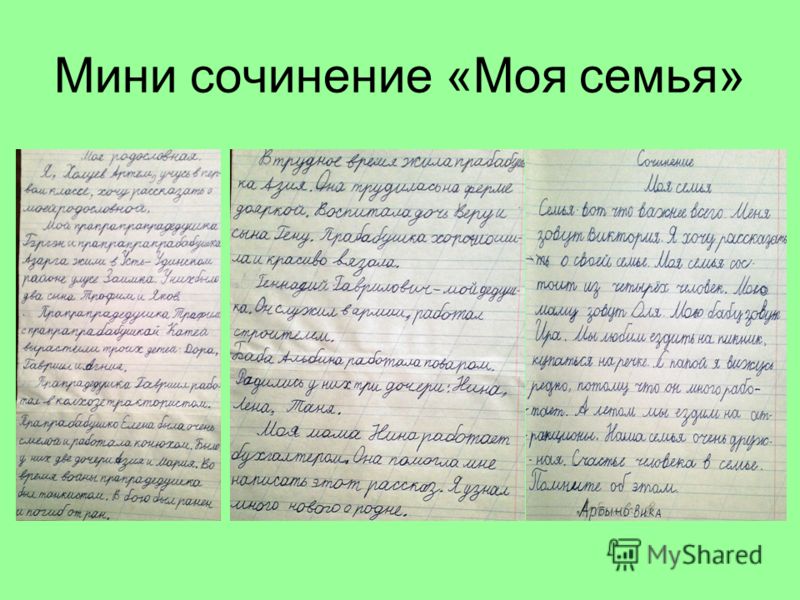 Мини сочинение «Моя семья»
Моя родословная.
Я, Холуев Артем, учусь в пер-
вом классе, хочу рассказать о
моей родословной.
Мой прапрапрапрадедушка
Гэргэн и прапрапрапрабабушка
Азарга жили в Усть-Удинском
районе улусе Заимка. У них было
два сына Трофим и Яков.
Прапрапрадедушка Трофим
с прапрапрабабушкой Катей
вырастели троих детей: Дора,
Гавриил и Агния.
Прапрадедушка Гавриил рабо-
тал в колхозе трактористом.
Прапрабабушка Елена была очень
смелой и работала конюхом. Были
у них две дочери Азия и Мария. Во
время войны прапрадедушка
был танкистом. В бою был ранен
и погиб от ран.
В трудное время жила прабабуш-
ка Азия. Она трудилась на ферме
дояркой. Воспитала дочь Веру и
сына Гену. Прабабушка хорошо ши-
ла и красиво вязала.
Геннадий Гаврилович - мой дедуш-
ка. Он служил в армии, работал
строителем.
Баба Альбина работала поваром.
Радились у них три дочери: Нина,
Лена, Таня.
Моя мама Нина работает
бухгалтером. Она помогла мне
написать этот рассказ. Я узнал
много нового о родне.
Сочинение
Моя семья
Семья вот что важнее всего. Меня
зовут Виктория. Я хочу рассказать
ть о своей семье. Моя семья сос-
тоит из четырёх человек. Мою
маму зовут Оля. Мою бабу зовут
Ира. Мы любим ездить на пикник,
купаться на речке. С папой я вижусь
редко, потому что он много рабо-
тает. А летом мы ездим на ат-
ракционы. Наша семья очень друж-
ная. Счастье человека в семье.
Помните об этом.
Арбыно Вика
MyShared